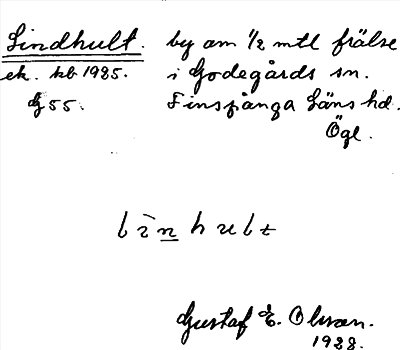 Lindhult. by om 1/2 mtl frälse
ek. kb 1925. i Godegårds sn.
G 55. Finspånga läns hd.
Ögl.
Gustaf E. Olsson.
1928.